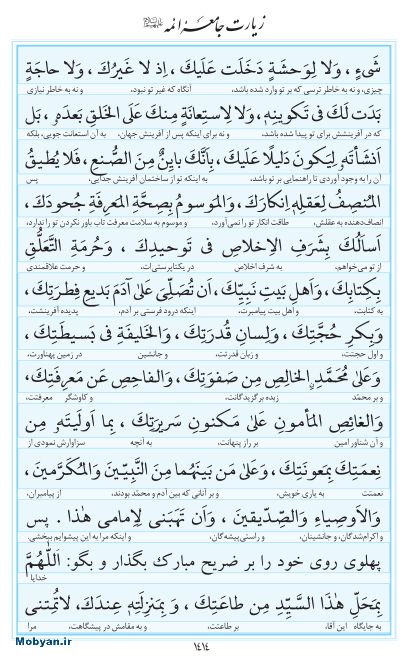 زیارت جامعهٔ ائمه علیهم السلام
شَیءٍ ، وَلا لِوَحشَةٍ دَخَلَت عَلَيكَ ، اِذ لا غَيرُكَ ، وَلا حاجَةٍ
چیزی، و نه به خاطر ترسی که بر تو وارد شده باشد، آنگاه که غیر تو نبود، و نه به خاطر نیازی
بَدَت لَكَ فی تَکوینِهِ ، وَلا لِاستِعانَةٍ مِنكَ عَلَی الخَلقِ بَعدَهُ ، بَل
که در آفرینشش برای تو پیدا شده باشد، و نه برای اینکه پس از آفرینش جهان، به آن استعانت جویی، بلکه
اَنشَأتَهُ لِیَکونَ دَلیلًا عَلَیكَ ، بِاَنَّكَ بایِنٌ مِنَ الصُّنعِ ، فَلا یُطیقُ
آن را به وجود آوردی تا راهنمایی بر تو باشد، به اینکه تو از ساختمان آفرینش جدایی، پس
المُنصِفُ لِعَقلِهِ اِنکارَكَ ، وَالمَوسومُ بِصِحَّةِ المَعرِفَةِ جُحودَكَ ،
انصاف‌دهنده به عقلش، طاقت انکار تو را نمی‌آورد، و موسوم به سلامت معرفت تاب باور نکردن تو را ندارد،
اَسأَلُكَ بِشَرَفِ الاِخلاصِ فی تَوحیدِكَ ، وَحُرمَةِ التَّعَلُّقِ
از تو می‌خواهم، به شرف اخلاص در یکتاپرستی‌ات، و حرمت علاقمندی
بِکِتابِكَ ، وَاَهلِ بَیتِ نَبِیِّكَ ، اَن تُصَلِّیَ عَلیٰ آدَمَ بَدیعِ فِطرَتِكَ ،
به کتابت، و اهل بیت پیامبرت، اینکه درود فرستی بر آدم، پدیده آفرینشت،
وَبِکرِ حُجَّتِكَ ، وَلِسانِ قُدرَتِكَ ، وَالخَلیفَةِ فی بَسیطَتِكَ ،
و اول حجتت، و زبان قدرتت، و جانشین در زمین پهناورت،
وَعَلیٰ مُحَمَّدٍ الخالِصِ مِن صَفوَتِكَ ، وَالفاحِصِ عَن مَعرِفَتِكَ ،
و بر محمّد زبده برگزیدگانت، و کاوشگر معرفتت،
وَالغائِصِ المَأمونِ عَلیٰ مَکنونِ سَریرَتِكَ ، بِما اَولَیتَهُ مِن
و آن شناور امین بر راز پنهانت، به آنچه سزاوارش نمودی از
نِعمَتِكَ بِمَعونَتِكَ ، وَعَلیٰ مَن بَینَهُما مِنَ النَّبِیّینَ وَالمُکَرَّمینَ ،
نعمتت به یاری خویش، و بر آنانی که بین آدم و محمّد بودند، از پیامبران،
وَالاَوصِیاءِ وَالصِّدّیقینَ ، وَاَن تَهَبَنی لِاِمامی هٰذا . پس
و اکرام‌شدگان، و جانشینان، و راستی‌پیشه‌گان، و اینکه مرا به این پیشوایم ببخشی.
پهلوی روی خود را بر ضریح مبارک بگذار و بگو: اَللّٰهُمَّ
خدایا
بِمَحَلِّ هٰذَا السَّیِّدِ مِن طاعَتِكَ ، وَ بِمَنزِلَتِهِ عِندَكَ، لاتُمِتنی
به جایگاه این آقا، بر طاعتت، و به مقامش در پیشگاهت، مرا
Mobyan.ir
۱۴۱۴